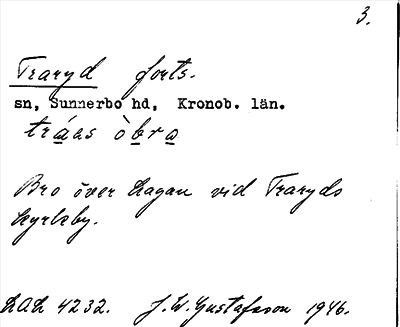 3.
Traryd forts.
sn, Sunnerbo hd, Kronob. län.
tráas òbra
Bro över Lagan vid Traryds
kyrkby.
LAL 4232. J.W. Gustafsson 1946.